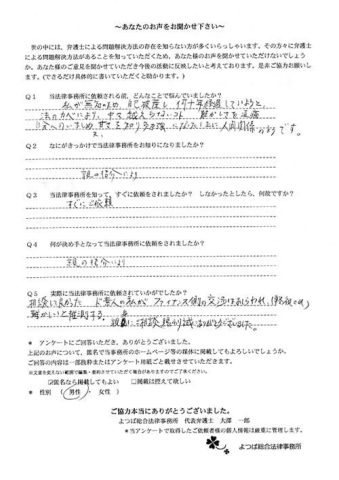 ～あなたのお声をお聞かせ下さい～
世の中には、弁護士による問題解決方法の存在を知らない方が多くいらっしゃいます。その方々に弁護士
による問題解決方法があることを知っていただくため、あなた様のお声を聞かせていただけないでしょう
か。あなた様のご意見を聞かせていただき今後の活動に反映したいと考えております。是非ご協力お願いし
ます。(できるだけ具体的に書いていただくと助かります。)
Q1 当法律事務所に依頼される前、どんなことで悩んでいましたか？
私が無知の為、自己破産し、何十年経過していようと、
法のかべにより、
です。
Q2 なにがきっかけで当法律事務所をお知りになりましたか？
親の紹介により
Q3 当法律事務所を知って、すぐに依頼をされましたか？ しなかったとしたら、何故ですか？
すぐにご依頼
Q4 何が決め手となって当法律事務所に依頼をされましたか？
親の紹介より
Q5 実際に当法律事務所に依頼されていかがでしたか？
相談し良かった 素人の私が ファイナンス側の交渉は
難かしいと推測する。
親身にご相談
＊ アンケートにご回答いただき、ありがとうございました。
上記のお声について、匿名で当事務所のホームページ等の媒体に掲載してもよろしいでしょうか。
ご回答の内容は一部抜粋またはアンケート用紙ごと載せさせていただきます。
※文意を変えない範囲で編集・要約させていただく場合がありますのでご了承ください。
☑匿名なら掲載してもよい □掲載は控えて欲しい
＊ 性別 （ 男性 ・ 女性 ）
ご協力本当にありがとうございました。
よつば総合法律事務所 代表弁護士 大澤 一郎
＊当アンケートで取得したご依頼者様の個人情報は厳重に管理します。
よつば総合法律事務所